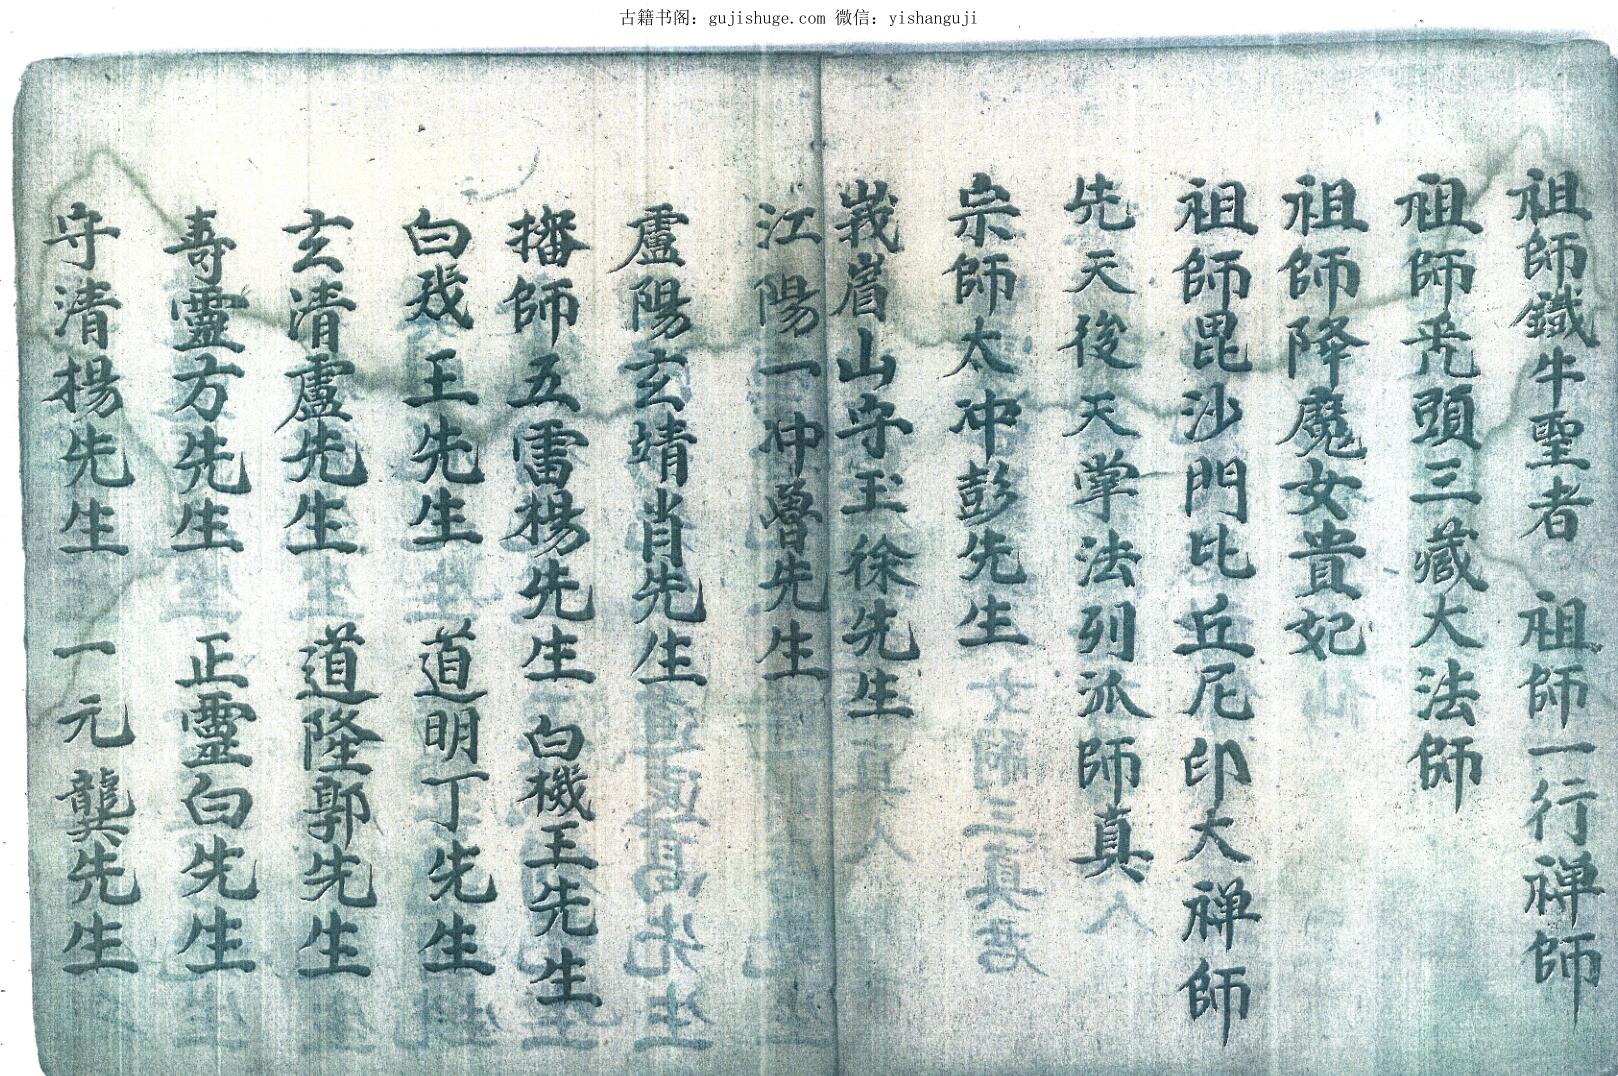 古籍书阁：gujishuge.com 微信：yishanguji
祖師鐵牛聖者 祖師一行禅師
祖師禿頭三藏大法師
祖師降魔女貴妃
祖師毘沙門比丘尼印大禅師
先天後天掌法列派師真
宗師太冲彭先生
峩眉山守玉徐先生
江陽一冲魯先生
盧陽玄靖肖先生
播師五雷楊先生 白機王先生
白戔王先生 道明丁先生
玄清盧先生 道隆郭先生
壽靈方先生 正靈白先生
守清揚先生 一元龔先生